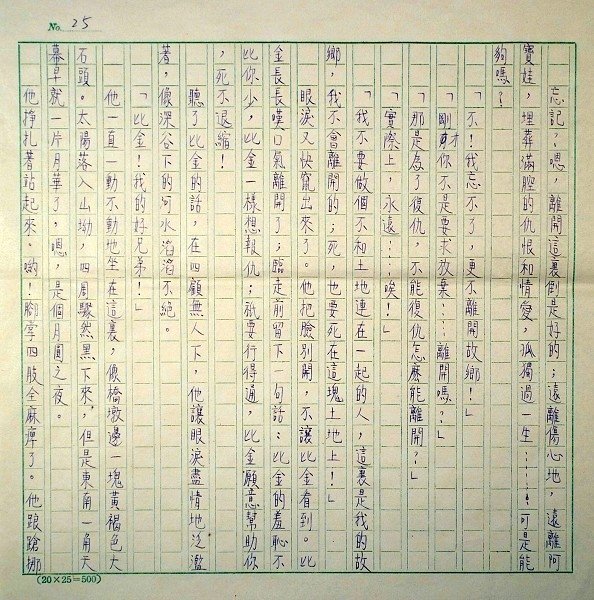 No. 25
忘記？嗯，離開這裏倒是好的；遠離傷心地，遠離阿
寶娃，埋葬滿腔的仇恨和情愛，孤獨過一生……可是能
夠嗎？
「不！我忘不了，更不離開故鄉！」
「剛才你不是要求放棄……離開嗎？」
「那是為了復仇，不能復仇怎麼能離開？」
「實際上，永遠……唉！」
「我不要做個不和土地連在一起的人，這裏是我的故
鄉，我不會離開的；死，也要死在這塊土地上！」
眼淚又快竄出來了。他把臉別開，不讓比金看到。比
金長長嘆口氣離開了；臨走前留下一句話：比金的羞恥不
比你少，比金一樣想報仇；祇要行得通，比金願意幫助你
，死不退縮！
聽了比金的話，在四顧無人下，他讓眼淚盡情地泛濫
著，像深谷下的河水滔滔不絕。
「比金！我的好兄弟！」
他一直一動不動地坐在這裏，像橋墩邊一塊黃褐色大
石頭。太陽落入山坳，四周驟然黑下來，但是東南一角天
幕早就一片月華了，嗯，是個月圓之夜。
他掙扎著站起來。喲！腳掌四肢全麻痺了。他踉蹌挪
(20×25=500)